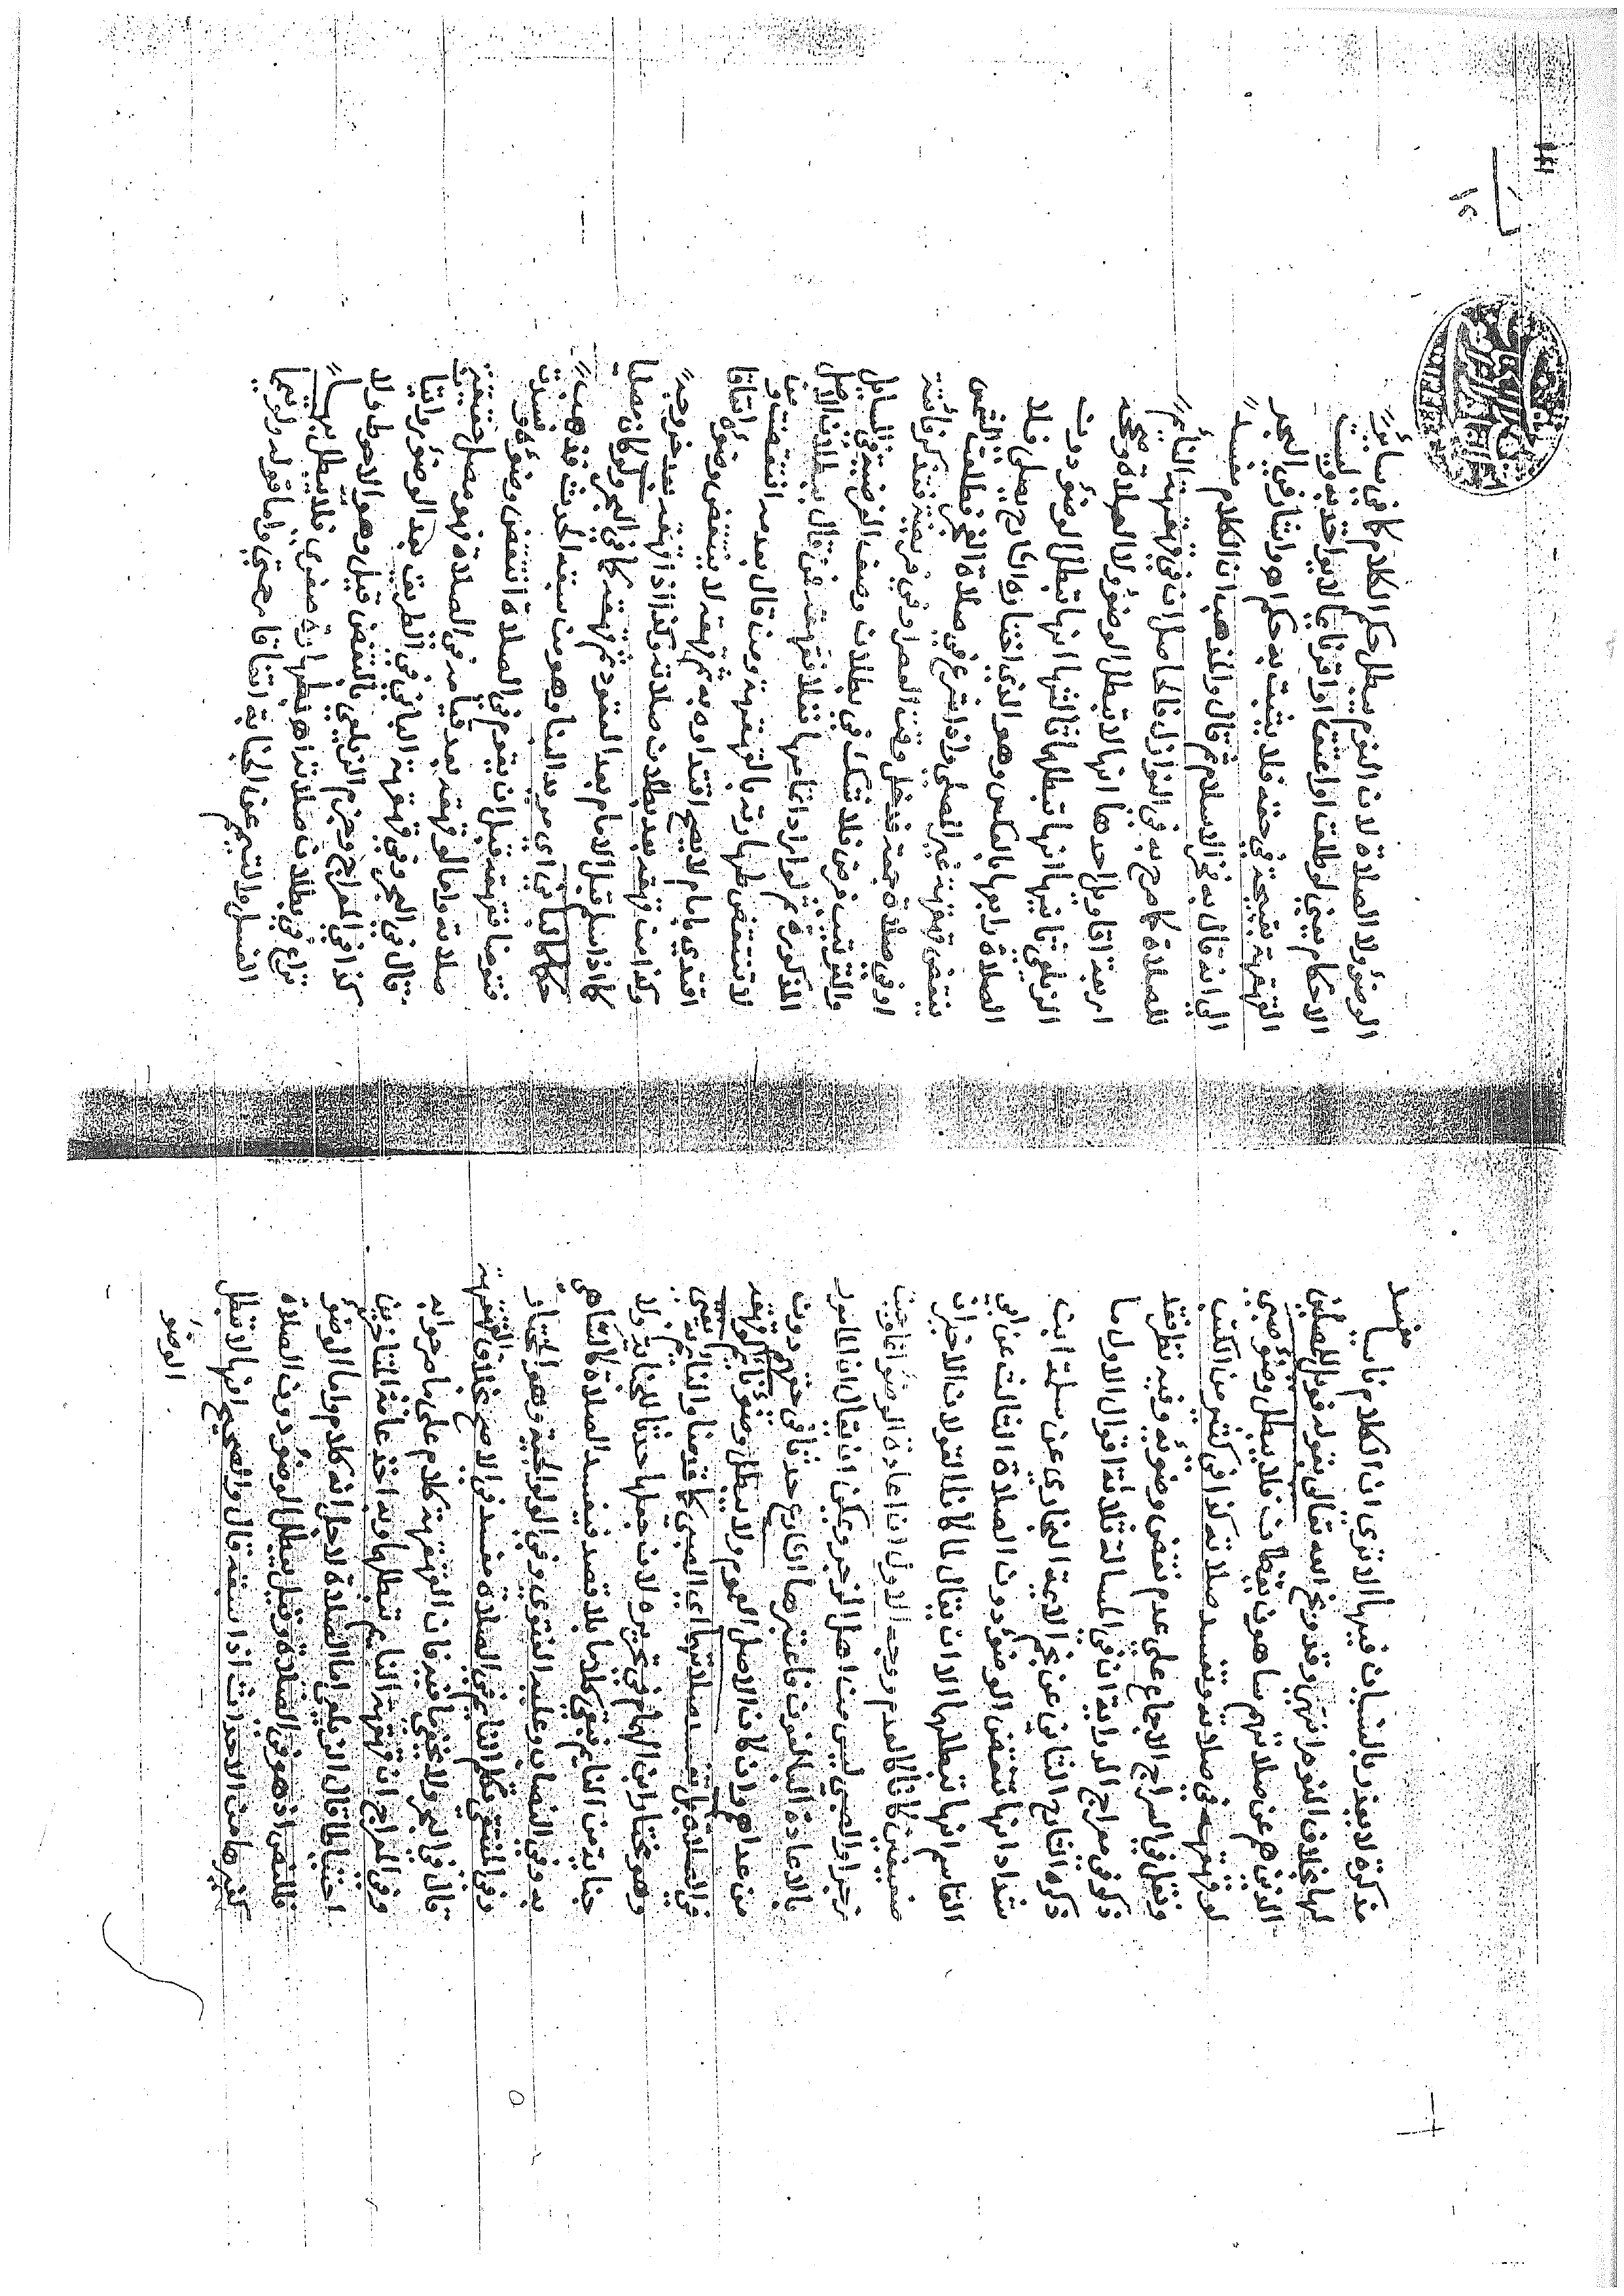 مفسد
مذكرة لا يعذر بالنسيان فيها الا ترى ان الكلام ناسيا
لها بخلاف النوم انتهى وقد وبخ الله تعالى بقوله فويل للمصلين
الذين هم عن صلاتهم ساهون يقظان فلا يبطل وضوء صبي
لو قهقهه في صلاته وتفسد صلاته كذا في كثير من الكتب
ونقل في السراج الاجماع على عدم نقض وضوئه وفيه نظر فقد
ذكر في معراج الدراية ان في المسالة ثلاثة اقوال الاول ما
ذكره الشارح الثاني عن نجم الايمة البخاري عن سلمة ابن
شداد انها تنقض الوضوء دون الصلاة الثالث عن ابي
القاسم انها تبطلها الا ان يقال لما كانا القولان الاخيران
ضعيفين كانا كالعدم ووجه الاول ان اعادة الوضوء انما وجبت
زجرا والصبي ليس من اهل الزجر ويمكن ان يقال ان المأمور
بالاعادة البالغون فاعتبرها الشارع حدثا في حقهم دون
من عداهم وان كان الاصل العموم ولا يبطل وضوء نائم لو قهقه
في الصلاة بل تفسد صلاتهما اي الصبي كما قدمنا والنائم به يفتى
وهو مختار ابن الهمام في تحريره لان جعلها حدثا للجناية ولا
جناية من النائم فتبقى كلاما بلا قصد فيفسد الصلاة كالساهي
به وفي النصاب وعليه الفتوى وفي الولوالجية وهو المختار
وفي المنتقى تكلم النائم في الصلاة مفسد في الاصح بخلاف القهقهة
قال في البحر ولا يخفى ما فيه فان القهقهة كلام على ما صرحوا به
وفي المعراج ان قهقهة النائم تبطلها وبه اخذ عامة المتاخرين
احتياطا قال الزيلعي اما الصلاة لاجل انه كلام واما الوضوء
فللنص اذ هو في الصلاة وقيل يبطل الوضوء دون الصلاة
كغيرها من الاحداث اذا سبقه قال والصحيح انها لا تبطل
الوضوء
١٥
الوضوء ولا الصلاة لان النوم يبطل حكم الكلام كما في سائر
الاحكام يعني لو طلق او اعتق او اقر نائما لا يؤاخذ به وليست
القهقهة بقبيحة في حقه فلا يثبت به حكمها واشار في البحر
الى انه قال به فخر الاسلام ثم قال والمذهب ان الكلام مفسد
للصلاة كما صرح به في النوازل فالحاصل ان في قهقهة النائم
اربعة اقاويل احدها انها لا تبطل الوضوء ولا الصلاة وصححه
الزيلعي ثانيها انها تبطلهما ثالثها انها تبطل الوضوء دون
الصلاة رابعها بالعكس وهو الذي اختاره الشارح يصلي فلا
ينتقض بقهقهة غير المصلي واذا شرع في صلاة الفجر فطلعت الشمس
او في صلاة جمعة فدخل وقت العصر او في فريضة فتذكر فائتة
والترتيب فرض فلا شك في بطلان وصف الفرضية في المسائل
المذكورة ثم لو اراد اتمامها نفلا فقهقه فمن قال ببطلان الاصل
لا تنتقض طهارته بالقهقهة ومن قال بعدمه انتقضت ومن
اقتدى بامام لا يصح اقتداؤه به ثم قهقه لا ينتقض وضوءه اتفاقا
وكذا من قهقه بعد بطلان صلاته وكذا اذا قهقه بعد خروجه
كما اذا سلم قبل الامام بعد القعود ثم قهقه كما في البحر ولو كان مصليا
حكما كالباني اي مريد البنا وهو من سبقه الحدث فذهب
فتوضا فقهقه قبل ان يقوم في الصلاة انتقض وضوءه وفسدت
صلاته واما لو قهقه بعد قيامه في الصلاة فهو مصل حقيقة
قال في البحر وفي قهقهة الباني في الطريق بعد الوضوء روايتان
كذا في المعراج وجزم الزيلعي بالنقض قيل وهو الاحوط ولا
نزاع في بطلان صلاته اهـ بطهارة صغرى فلا يبطل بها
الغسل والتيمم عن الجنابة اتفاقا مرحمتي واما قوله ولو تيمما